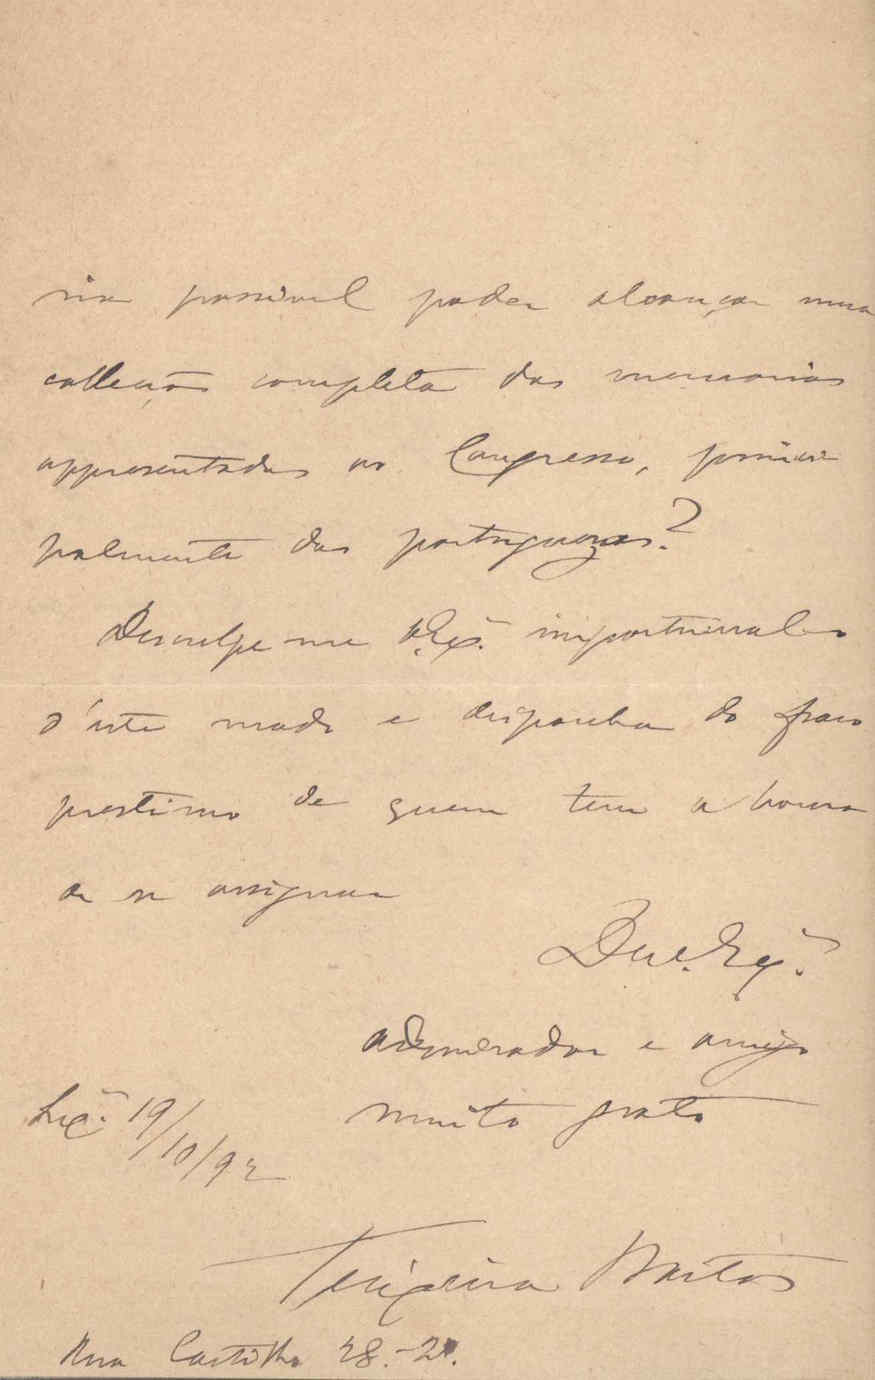 ria possivel poder alcançar uma
collecção completa das memorias
appresentadas ao Congresso, princi
palmente das portuguezas?
Desculpe-me V. Ex.ª importunal-o
d'este modo e disponha do fraco
prestimo de quem tem a honra
de se assignar
De V. Ex.ª
admirador e amigo
muito grato
Lxª 19/10/92
Teixeira Bastos
Rua Castilho 28.-2º.